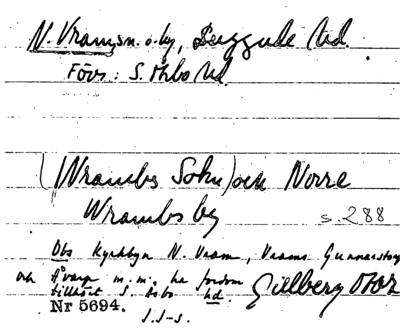 N. Vram sn. o. by, Luggude hd.
Förs: S. Åsbo hd.
(Wrambs Sokn) och Norre
Wrambs by s. 288
Obs Kyrkbyn N. Vram, Vrams Gunnarstorp
och Åvarp m.m. ha fordom
tillhört S. Åsbo hd. Gillberg
Nr 5694.
J.S-s.